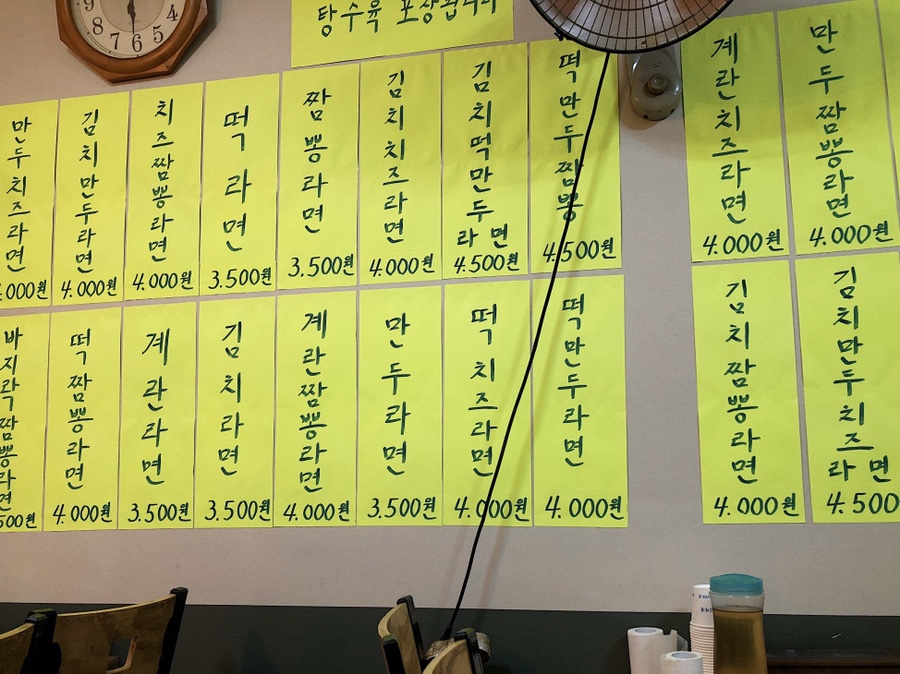 9 8 7 6 5 4
탕수육 포장됩니다
만두치즈라면
.000원
김치만두라면
4.000원
치즈짬뽕라면
4.000원
떡라면
3.500원
짬뽕라면
3.500원
김치치즈라면
4.000원
김치떡만두라면
4.500원
떡만두짬뽕
4.500원
계란치즈라면
4.000원
만두짬뽕라면
4.000원
바지락짬뽕라면
500원
떡짬뽕라면
4.000원
계란라면
3.500원
김치라면
3.500원
계란짬뽕라면
4.000원
만두라면
3.500원
떡치즈라면
4.000원
떡만두라면
4.000원
김치짬뽕라면
4.000원
김치만두치즈라면
4.500